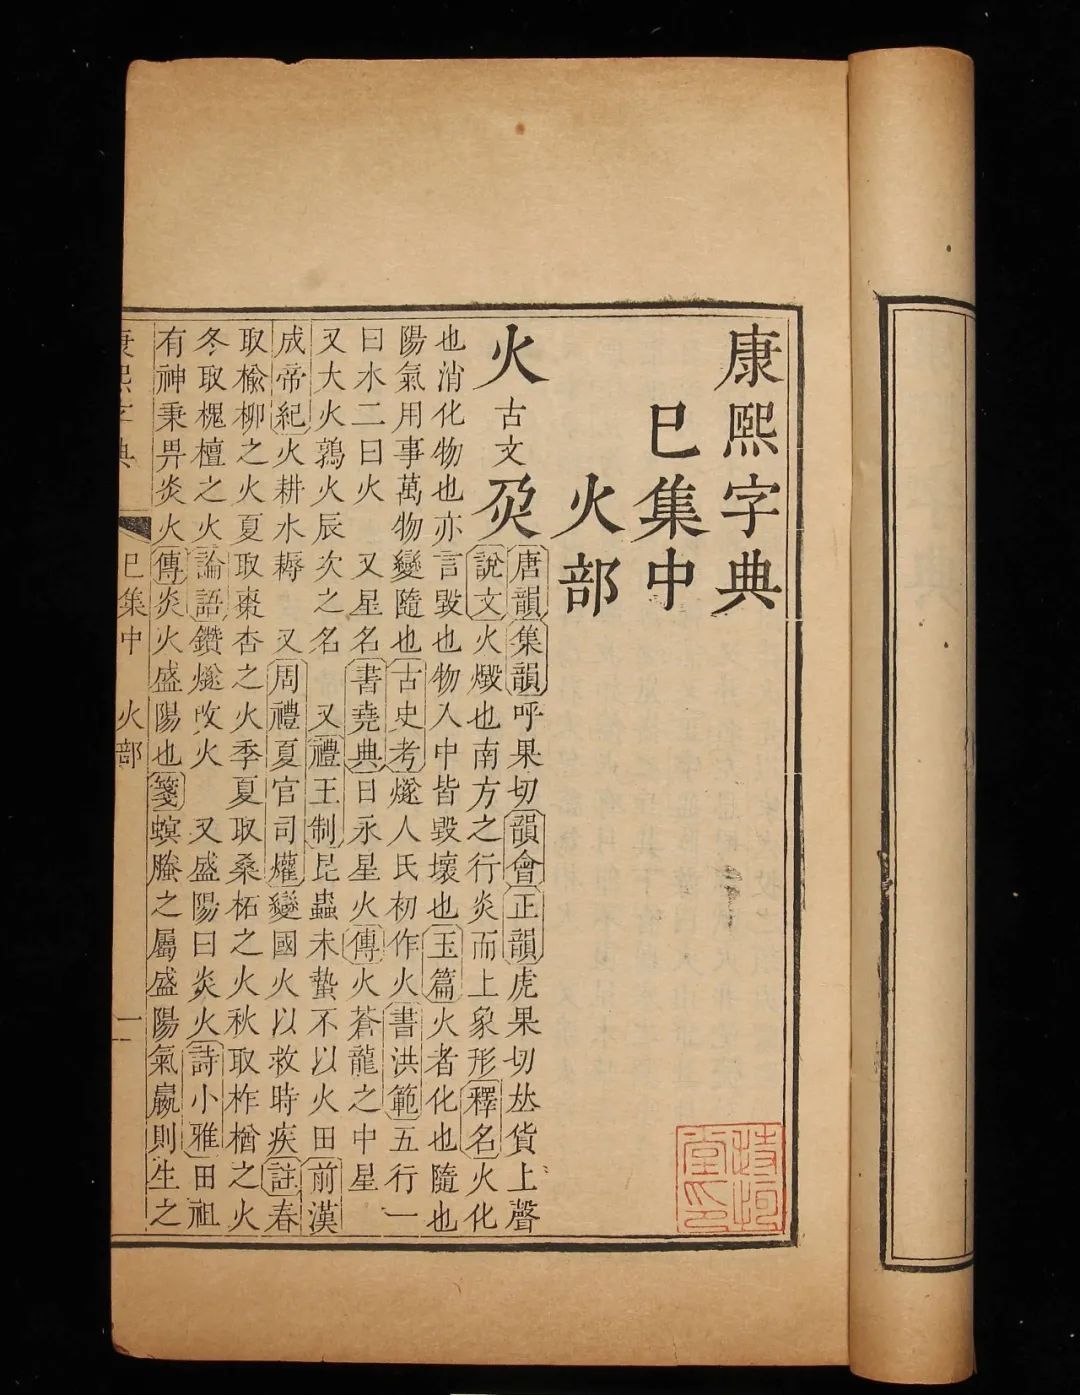 康熙字典
巳集中
火部
火 古文
唐韻集韻呼果切韻會正韻虎果切𠀤貨上聲
說文火燬也南方之行炎而上象形釋名火化
也消化物也亦言毀也物入中皆毀壞也玉篇火者化也隨也
陽氣用事萬物變隨也古史考燧人氏初作火書洪範五行一
曰水二曰火 又星名書堯典日永星火傳火蒼龍之中星
又大火鶉火辰次之名 又禮王制昆蟲未蟄不以火田前漢
成帝紀火耕水耨 又周禮夏官司爟變國火以救時疾註春
取榆柳之火夏取棗杏之火季夏取桑柘之火秋取柞楢之火
冬取槐檀之火論語鑽燧改火 又盛陽曰炎火詩小雅田祖
有神秉畀炎火傳炎火盛陽也箋螟螣之屬盛陽氣嬴則生之
康熙字典 巳集中 火部